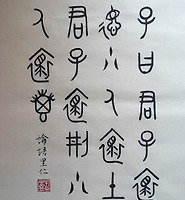 子曰君子懷
德小人懷土
君子懷刑小
人懷惠
論語里仁